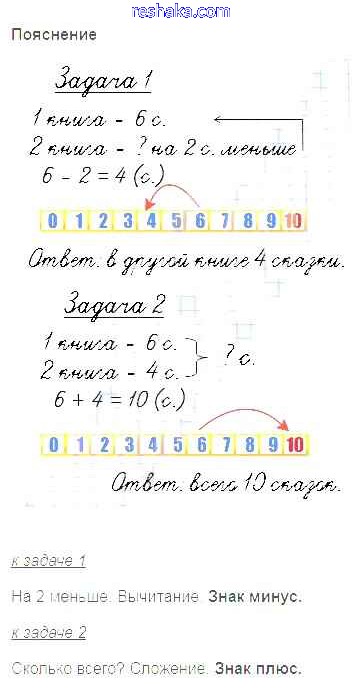 reshaka.com
Пояснение
Задача 1
1 книга - 6 с.
2 книга - ? на 2 с. меньше
6 - 2 = 4 (с.)
0 1 2 3 4 5 6 7 8 9 10
Ответ: в другой книге 4 сказки.
Задача 2
1 книга - 6 с.
2 книга - 4 с.
? с.
6 + 4 = 10 (с.)
0 1 2 3 4 5 6 7 8 9 10
Ответ: всего 10 сказок.
к задаче 1
На 2 меньше. Вычитание. Знак минус.
к задаче 2
Сколько всего? Сложение. Знак плюс.